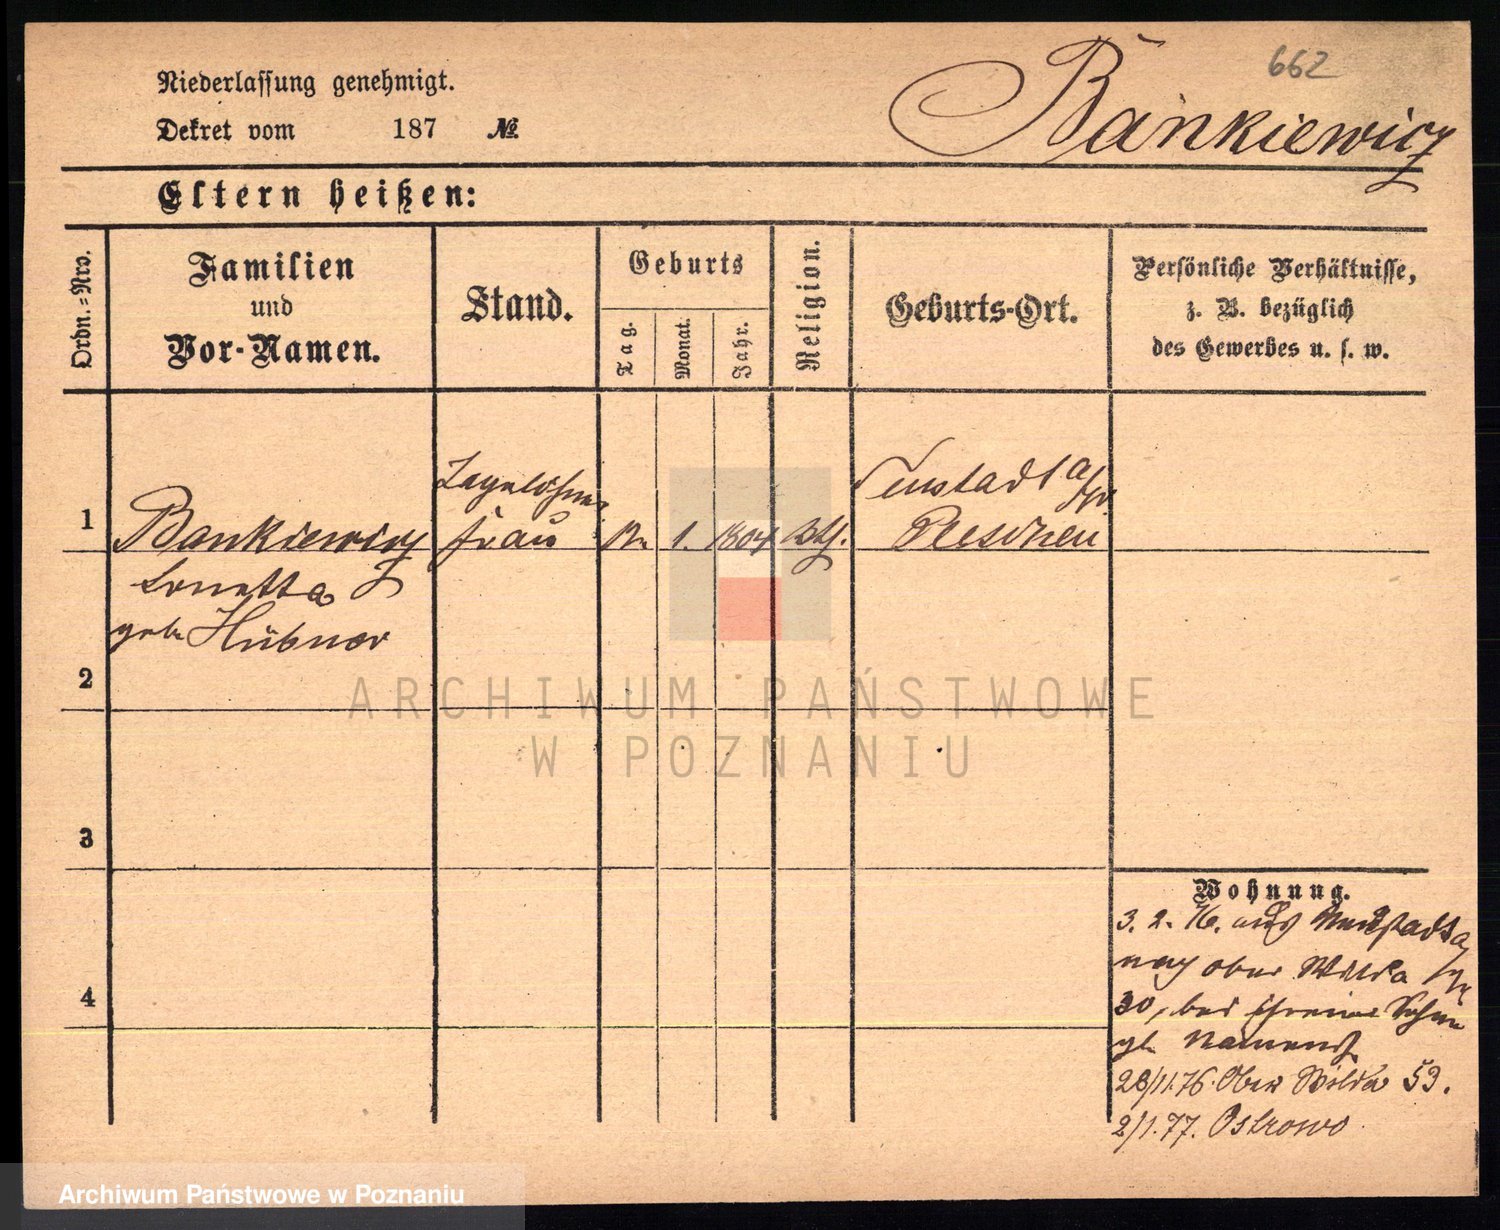 662
Bankiewicz
Niederlassung genehmigt.
Dekret vom 187 №
Eltern heißen:
Ordn.=Nro.
Familien
und
Vor-Namen.
Stand.
Geburts
Tag.
Monat.
Jahr.
Religion.
Geburts-Ort.
Persönliche Verhältnisse,
z. B. bezüglich
des Gewerbes u. s. w.
1
Bankiewicz
geb. Hübner
frau
1. 1804 kth.
Neustadt a/W
Pleschen
2
3
4
Wohnung.
3. 2. 76. aus Neustadt a/W
nach ober Wilda
30, bei ihrem Sohn
gl. Namens
28/11.76. Ober Wilda 53.
2/1.77. Ostrowo
ARCHIWUM PAŃSTWOWE
W POZNANIU
Archiwum Państwowe w Poznaniu